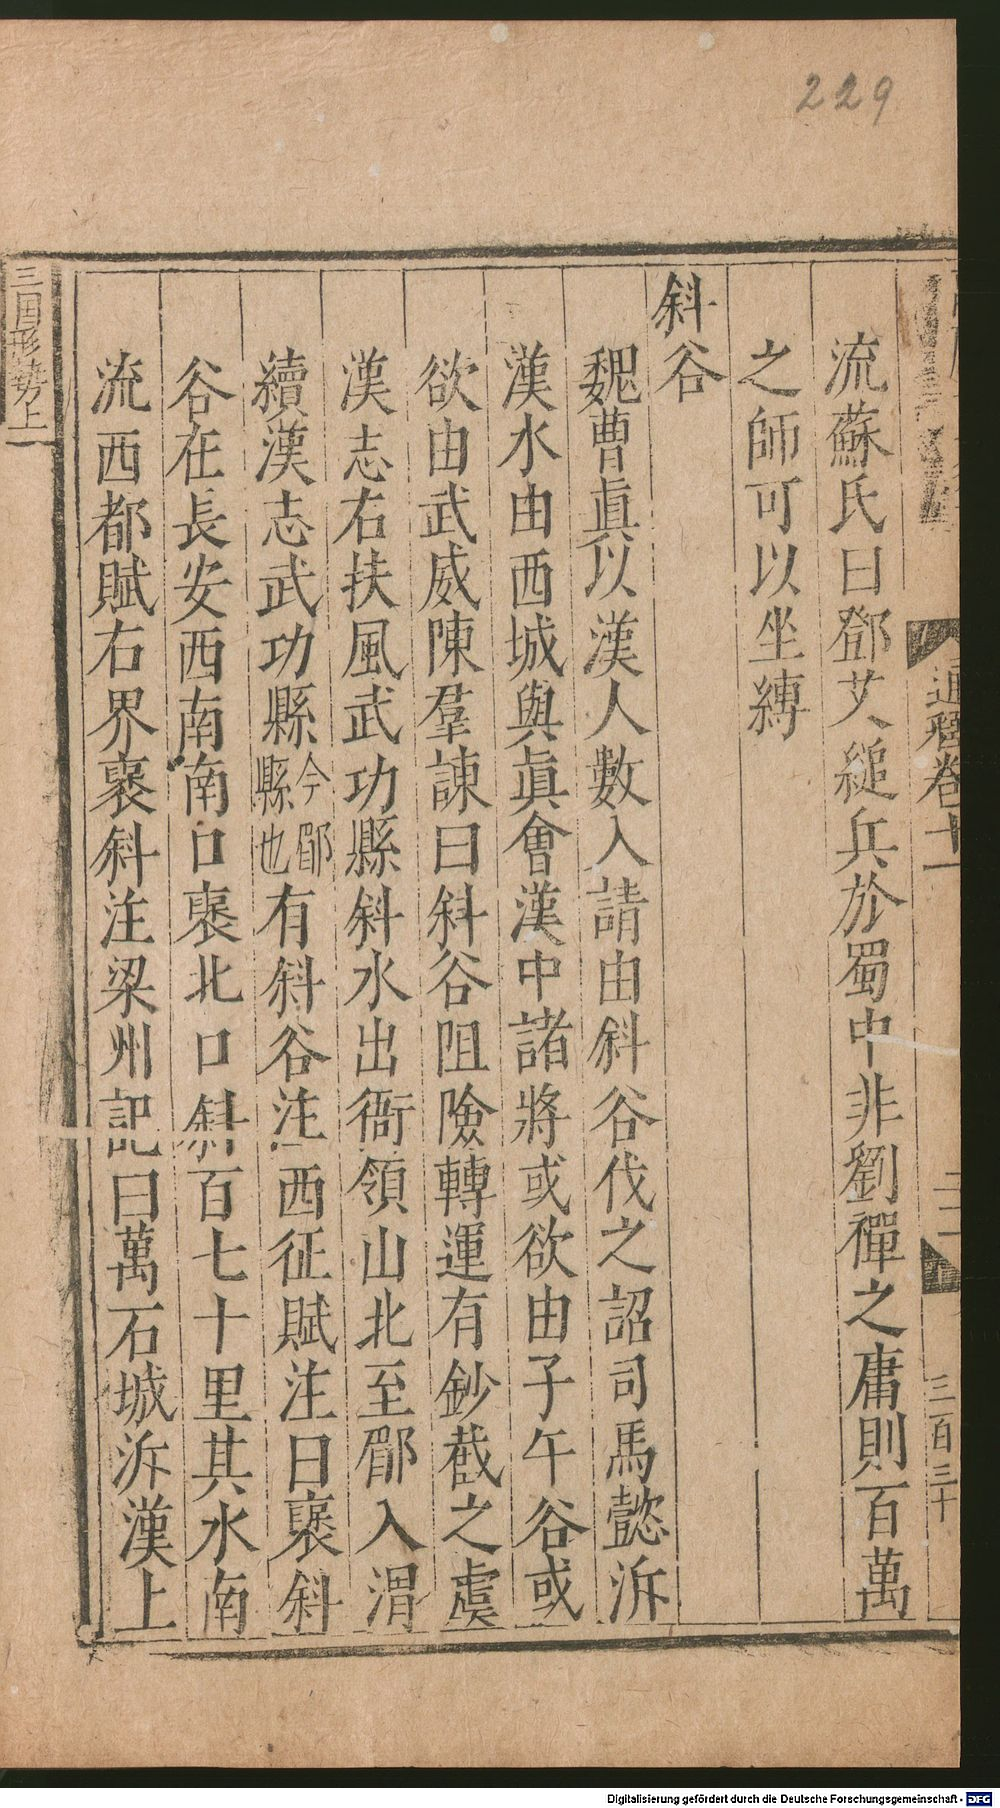 229
通釋卷十一
三百三十
流蘇氏曰鄧艾縋兵於蜀中非劉禪之庸則百萬
之師可以坐縛
斜谷
魏曹眞以漢人數入請由斜谷伐之詔司馬懿泝
漢水由西城與眞會漢中諸將或欲由子午谷或
欲由武威陳羣諫曰斜谷阻險轉運有鈔截之虞
漢志右扶風武功縣斜水出衙領山北至郿入渭
續漢志武功縣今郿縣也有斜谷注西征賦注曰褒斜
谷在長安西南南口褒北口斜百七十里其水南
流西都賦右界褒斜注梁州記曰萬石城泝漢上
三国形勢上
Digitalisierung gefördert durch die Deutsche Forschungsgemeinschaft - DFG